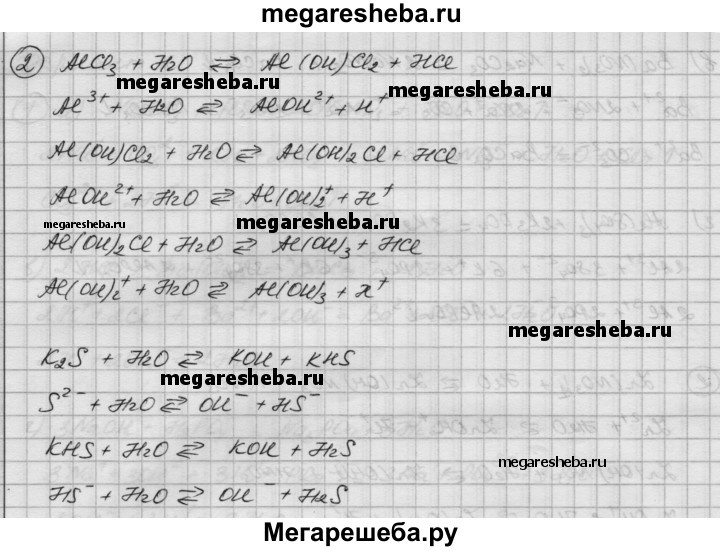 megaresheba.ru
② AlCl₃ + H₂O ⇄ Al(OH)Cl₂ + HCl
megaresheba.ru
Al³⁺ + H₂O ⇄ AlOH²⁺ + H⁺
megaresheba.ru
Al(OH)Cl₂ + H₂O ⇄ Al(OH)₂Cl + HCl
AlOH²⁺ + H₂O ⇄ Al(OH)₂⁺ + H⁺
megaresheba.ru
megaresheba.ru
Al(OH)₂Cl + H₂O ⇄ Al(OH)₃ + HCl
Al(OH)₂⁺ + H₂O ⇄ Al(OH)₃ + H⁺
megaresheba.ru
K₂S + H₂O ⇄ KOH + KHS
megaresheba.ru
S²⁻ + H₂O ⇄ OH⁻ + HS⁻
KHS + H₂O ⇄ KOH + H₂S
megaresheba.ru
HS⁻ + H₂O ⇄ OH⁻ + H₂S
Мегарешеба.ру